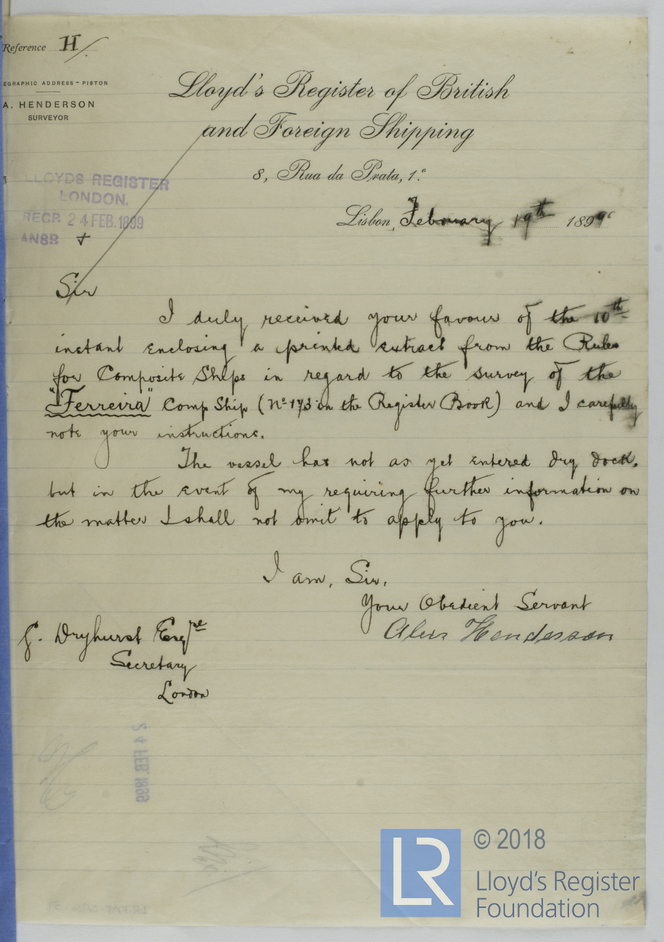 Reference H/
EGRAPHIC ADDRESS - PISTON
A. HENDERSON
SURVEYOR
Lloyd's Register of British
and Foreign Shipping
8, Rua da Prata, 1.º
LLOYDS REGISTER
LONDON.
RECD. 24 FEB. 1899
ANSD
Lisbon, February 19th 1899
Sir
I duly received your favour of the 10th
instant enclosing a printed extract from the Rules
for Composite Ships in regard to the survey of the
"Ferreira" Comp Ship (No 173 in the Register Book) and I carefully
note your instructions.
The vessel has not as yet entered dry dock,
but in the event of my requiring further information on
the matter I shall not omit to apply to you.
I am, Sir,
Your Obedient Servant
Alex Henderson
J. Dryhurst Esqre
Secretary
London
24 FEB. 1899
LR
© 2018
Lloyd's Register
Foundation